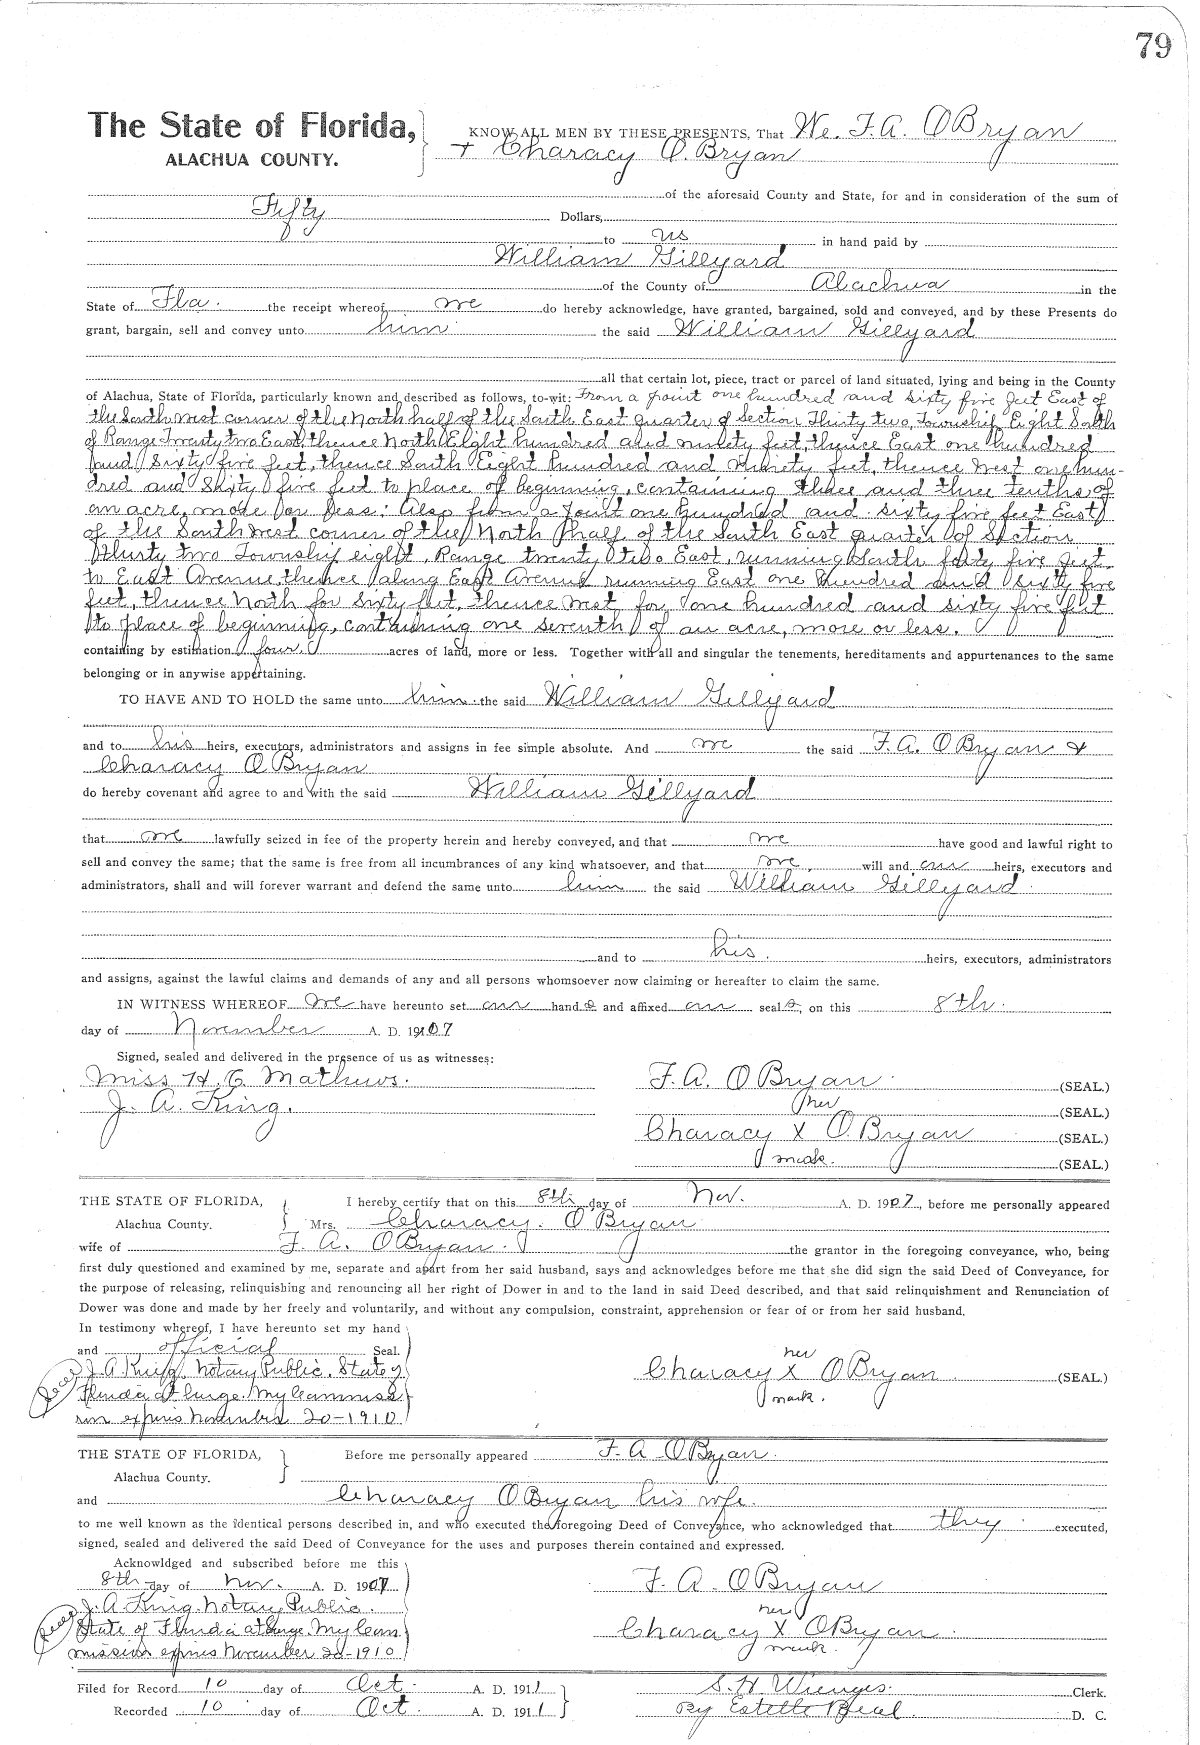 79
The State of Florida, KNOW ALL MEN BY THESE PRESENTS, That We. F. A. OBryan
ALACHUA COUNTY. + Characy O. Bryan
of the aforesaid County and State, for and in consideration of the sum of
Fifty Dollars,
to us in hand paid by
William Gillyard
of the County of Alachua in the
State of Fla. the receipt whereof we do hereby acknowledge, have granted, bargained, sold and conveyed, and by these Presents do
grant, bargain, sell and convey unto him the said William Gillyard
all that certain lot, piece, tract or parcel of land situated, lying and being in the County
of Alachua, State of Florida, particularly known and described as follows, to-wit: From a point one hundred and sixty five feet East of
the South West corner of the North half of the South East quarter of Section Thirty two, Township Eight South
of Range Twenty two East, thence North Eight hundred and ninety feet, thence East one hundred
and Sixty five feet, thence South Eight hundred and Ninety feet, thence West one hun-
dred and Sixty five feet to place of beginning, containing three and three tenths of
an acre, more or less; Also from a point one hundred and sixty five feet East
of the South West corner of the North half of the South East quarter of Section
thirty two Township eight, Range twenty two East, running South forty five feet
to East Avenue thence along East Avenue running East one hundred and sixty five
feet, thence North for sixty feet, thence West for one hundred and sixty five feet
to place of beginning, containing one seventh of an acre, more or less.
containing by estimation four acres of land, more or less. Together with all and singular the tenements, hereditaments and appurtenances to the same
belonging or in anywise appertaining.
TO HAVE AND TO HOLD the same unto him the said William Gillyard
and to his heirs, executors, administrators and assigns in fee simple absolute. And we the said F. A. OBryan &
Characy O Bryan
do hereby covenant and agree to and with the said William Gillyard
that we lawfully seized in fee of the property herein and hereby conveyed, and that we have good and lawful right to
sell and convey the same; that the same is free from all incumbrances of any kind whatsoever, and that we, will and our heirs, executors and
administrators, shall and will forever warrant and defend the same unto him the said William Gillyard.
and to his. heirs, executors, administrators
and assigns, against the lawful claims and demands of any and all persons whomsoever now claiming or hereafter to claim the same.
IN WITNESS WHEREOF We have hereunto set our hand s and affixed our seal s, on this 8th.
day of November A. D. 1907
Signed, sealed and delivered in the presence of us as witnesses:
Miss H. E. Mathews. F. A. OBryan. (SEAL.)
J. A. King. her (SEAL.)
Characy X O. Bryan (SEAL.)
mark. (SEAL.)
THE STATE OF FLORIDA, I hereby certify that on this 8th day of Nov. A. D. 1907, before me personally appeared
Alachua County. Mrs. Characy. O Bryan
wife of F. A. OBryan. the grantor in the foregoing conveyance, who, being
first duly questioned and examined by me, separate and apart from her said husband, says and acknowledges before me that she did sign the said Deed of Conveyance, for
the purpose of releasing, relinquishing and renouncing all her right of Dower in and to the land in said Deed described, and that said relinquishment and Renunciation of
Dower was done and made by her freely and voluntarily, and without any compulsion, constraint, apprehension or fear of or from her said husband.
In testimony whereof, I have hereunto set my hand
and official Seal. her
J. A. King, Notary Public. State of Characy X OBryan (SEAL.)
Florida at large. My Commiss mark.
ion expires November 20-1910
THE STATE OF FLORIDA, Before me personally appeared F. A OBryan.
Alachua County.
and Characy OBryan his wife.
to me well known as the identical persons described in, and who executed the foregoing Deed of Conveyance, who acknowledged that they executed,
signed, sealed and delivered the said Deed of Conveyance for the uses and purposes therein contained and expressed.
Acknowldged and subscribed before me this
8th day of Nov. A. D. 1907 F. A. OBryan
J. A. King. Notary Public. her
State of Florida at large. My Com Characy X OBryan.
mission expires November 20-1910 mark.
Filed for Record 10 day of Oct. A. D. 1911 S. H. Wienges. Clerk.
Recorded 10 day of Oct. A. D. 1911 By Estelle Beal D. C.